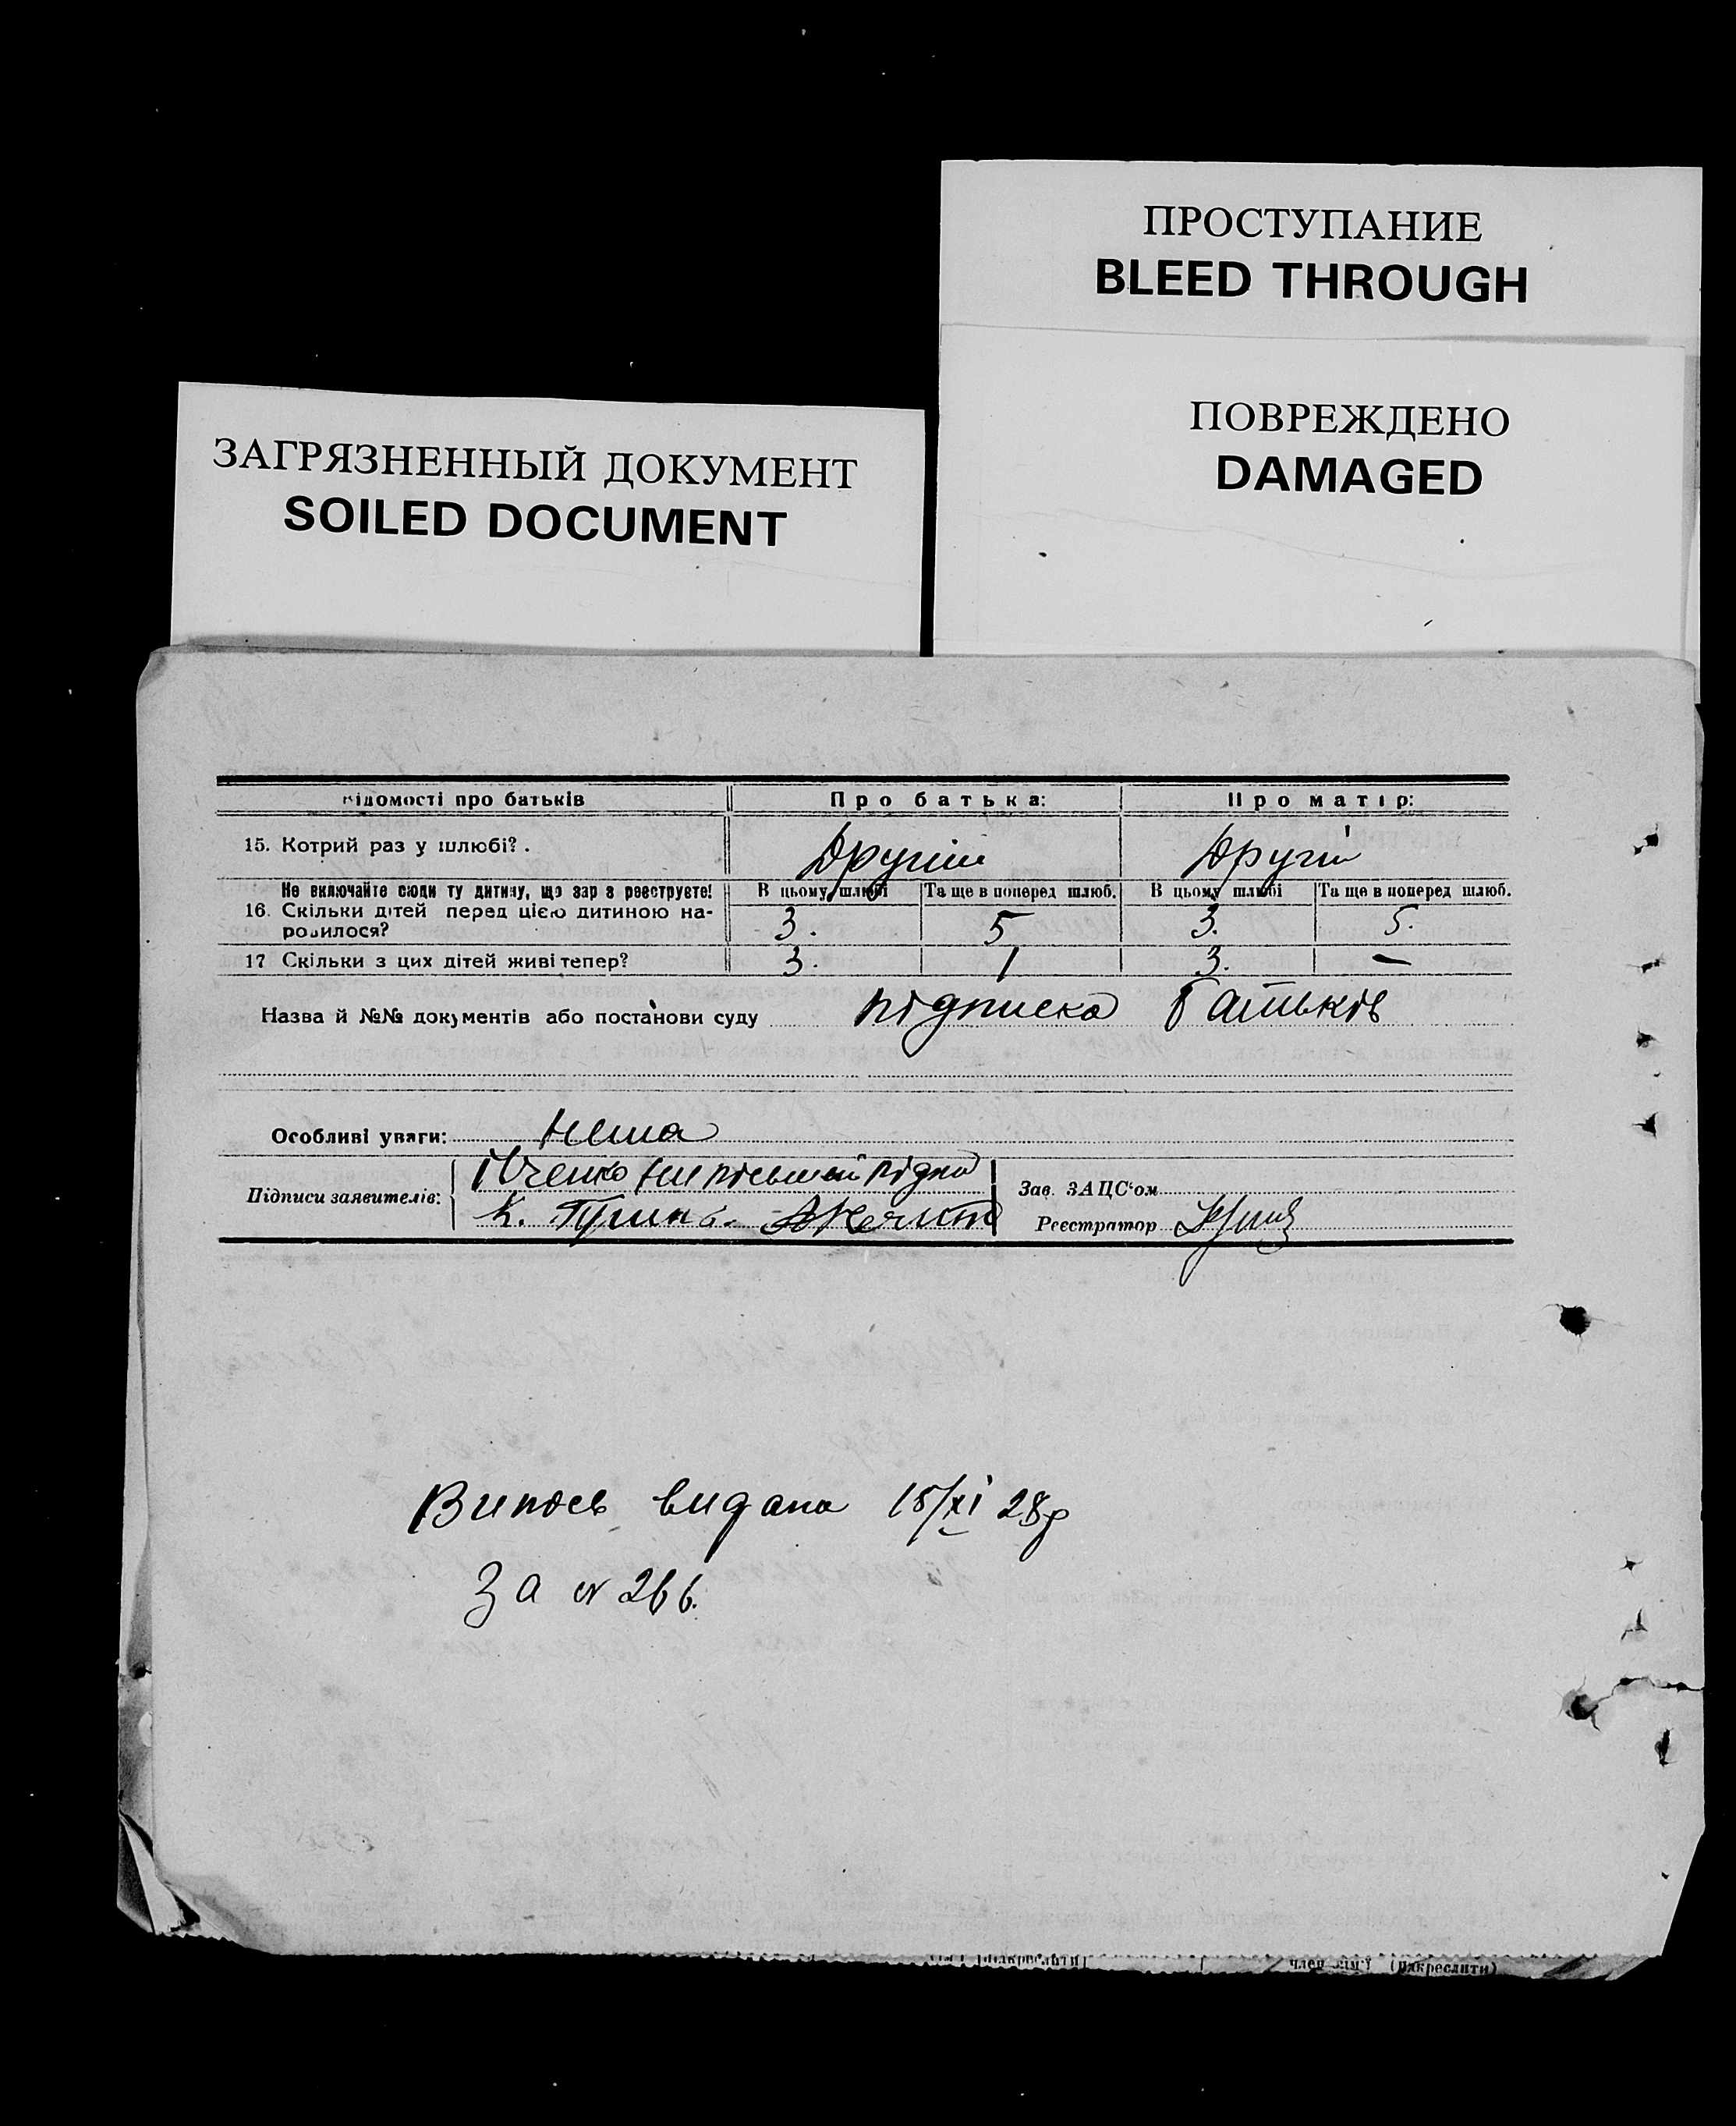 ПРОСТУПАНИЕ
BLEED THROUGH
ПОВРЕЖДЕНО
DAMAGED
ЗАГРЯЗНЕННЫЙ ДОКУМЕНТ
SOILED DOCUMENT
Відомості про батьків Про батька: Про матір:
15. Котрий раз у шлюбі? . Другий Другий
Не включайте сюди ту дитину, що зар з реєструєте! В цьому шлюбі Та ще в поперед шлюб. В цьому шлюбі Та ще в поперед шлюб.
16. Скільки дітей перед цією дитиною на-
родилося? 3. 5 3. 5.
17 Скільки з цих дітей живі тепер? 3. 1 3. —
Назва й №№ документів або постанови суду підписка батьків
Особливі уваги: нема
Підписи заявителів: Івченко
К.
Зав. ЗАЦС'ом
Реєстратор
Випись видана 15/XI 28р
За № 266.
(підкреслити)
член сім'ї (підкреслити)